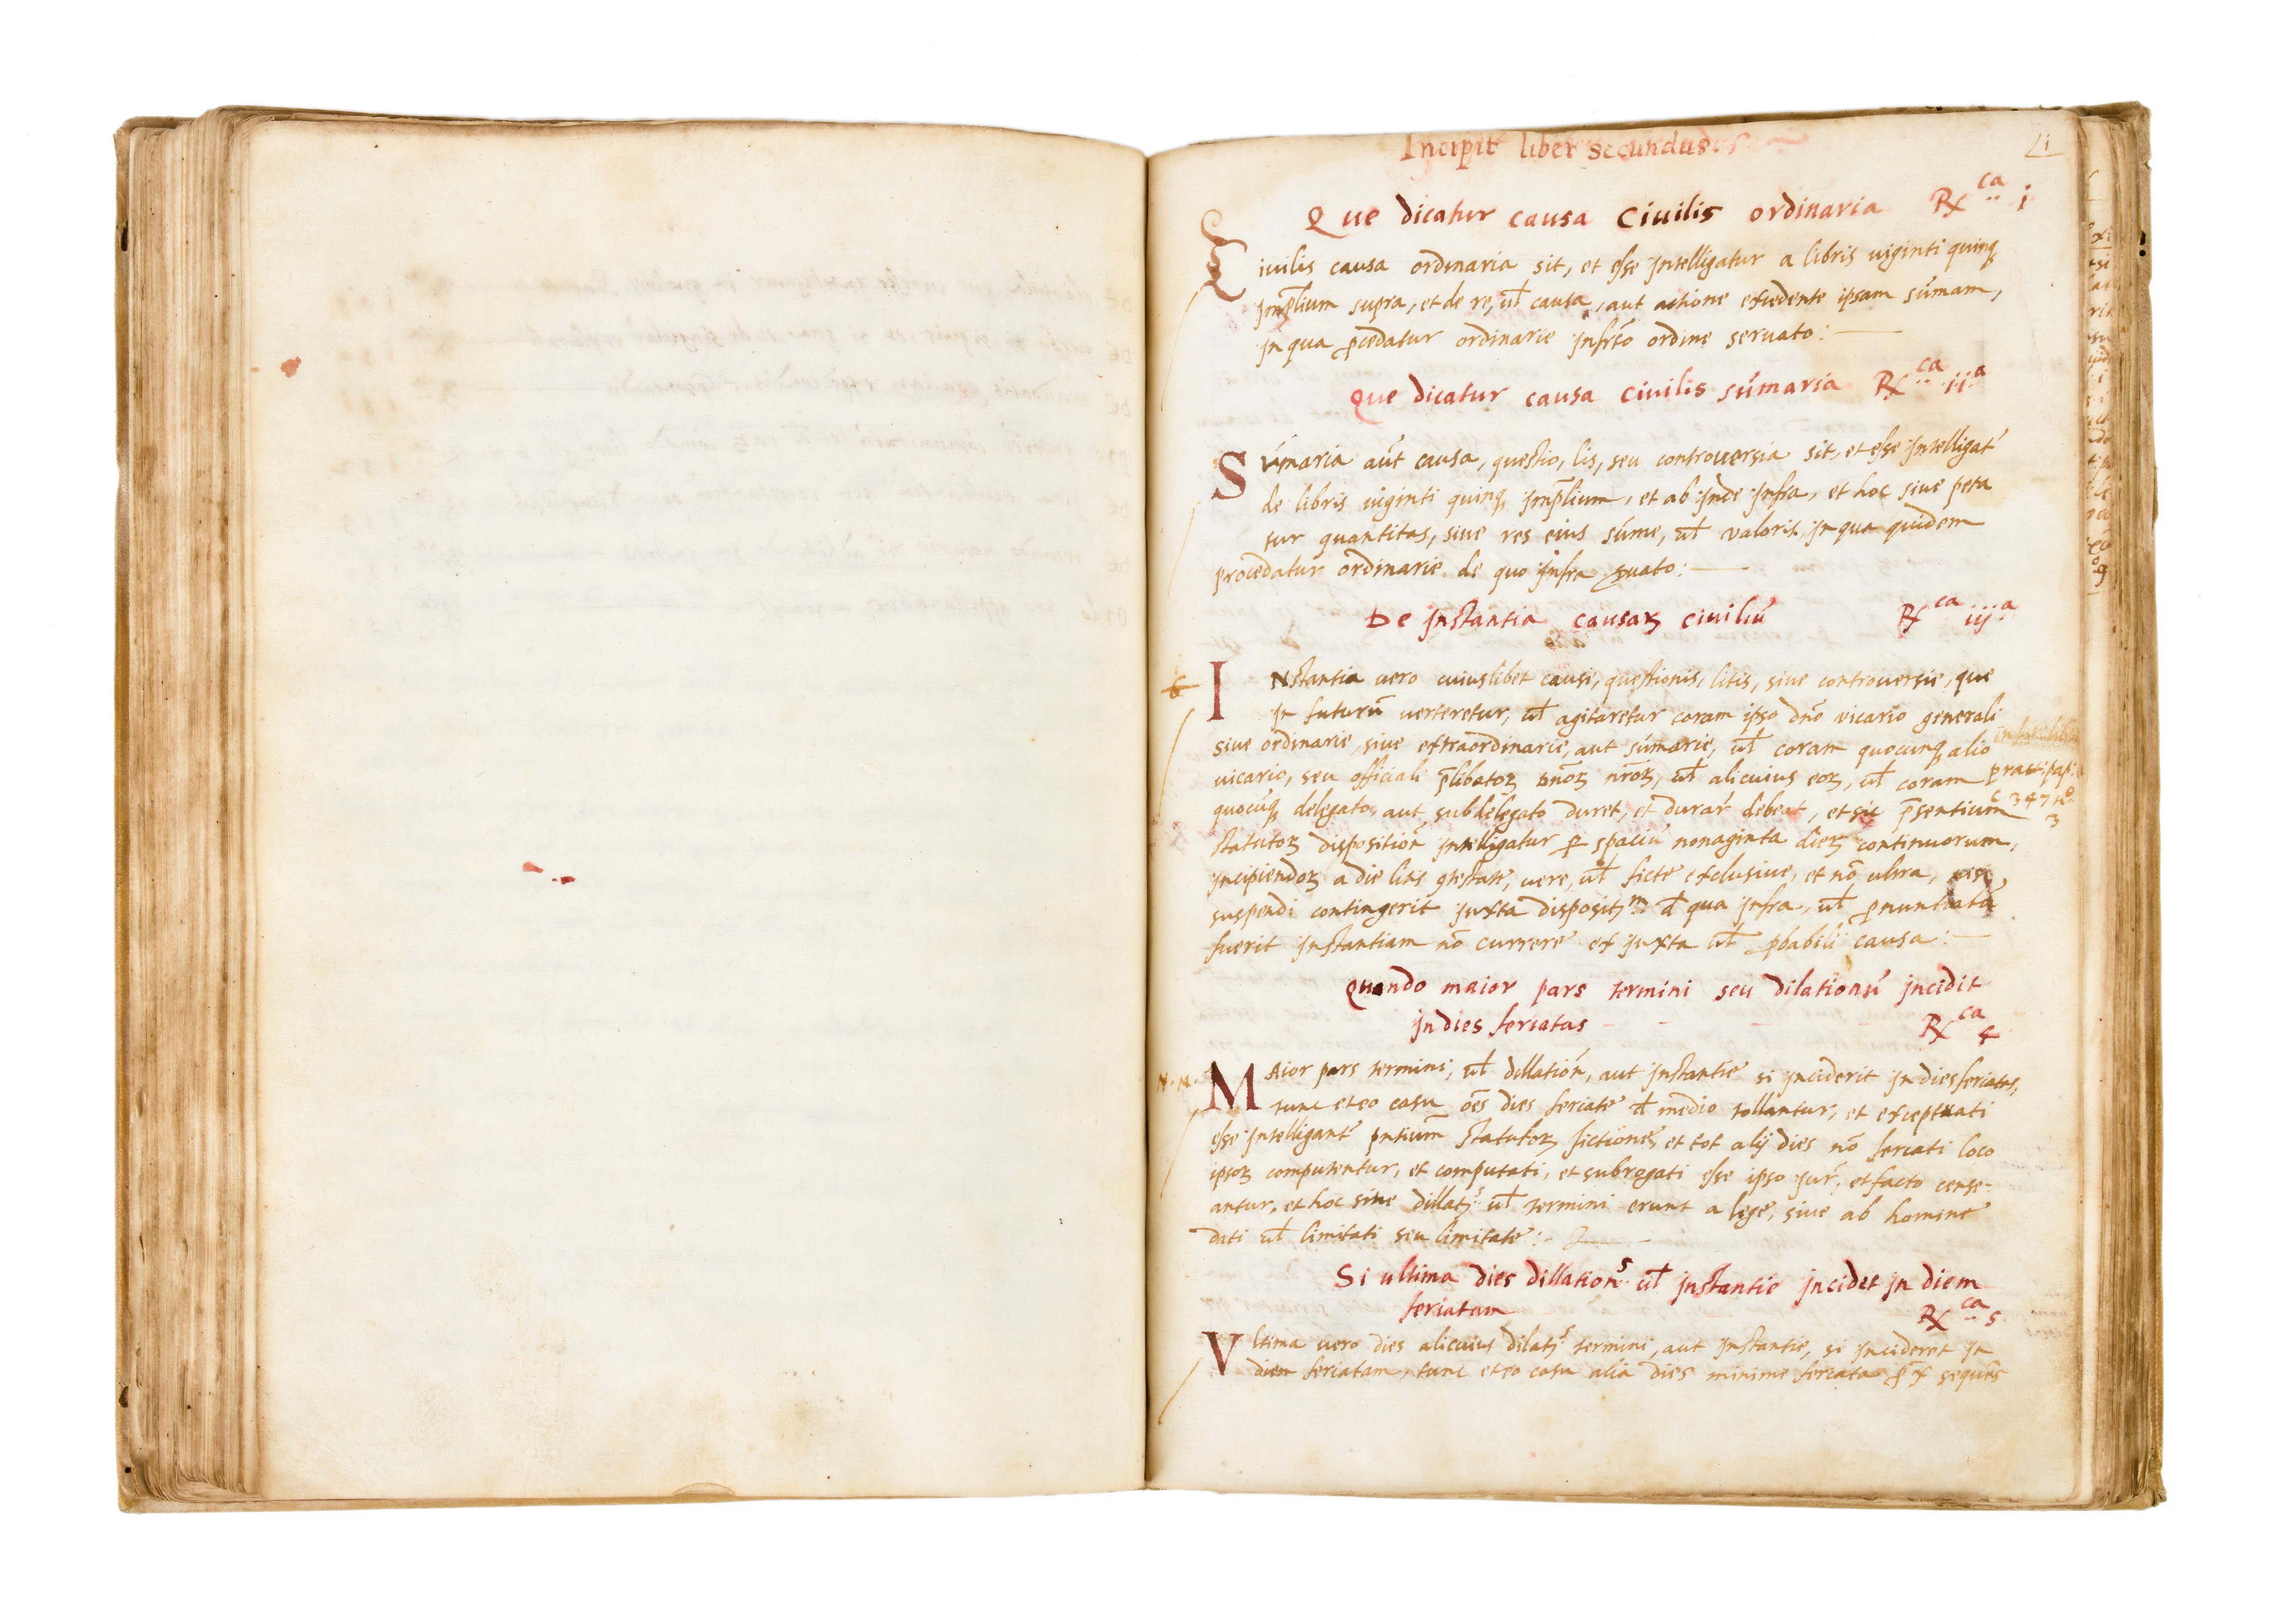 Incipit liber secundus
Que dicatur causa Ciuilis ordinaria Rx^ca i
iuilis causa ordinaria sit, et esse intelligatur a libris uiginti quinq
imp̄lium supra, et de re, ul̄ causa, aut actione excedente ipsam sum̄am,
in qua p̄cedatur ordinarie infr̄to ordine seruato:
Que dicatur causa Ciuilis sum̄aria Rx^ca ii^a
Sum̄aria aūt causa, questio, lis, seu controuersia sit, et esse intelligat̄
de libris uiginti quinq imp̄lium, et ab inde infra, et hoc siue peta
tur quantitas, siue res eius sum̄e, ul̄ valoris, in qua quidem
procedatur ordinarie de quo infra s̄uato:
De instantia causaꝝ ciuiliū Rx^ca iij^a
INstantia uero cuiuslibet cause, questionis, litis, siue controuersie, que
in futurū uerteretur, ul̄ agitaretur coram ipso dn̄o vicario generali
siue ordinarie, siue extraordinarie, aut sum̄arie, ul̄ coram quocunq alio
uicario, seu officiali p̄libatoꝝ dn̄oꝝ nr̄oꝝ, ul̄ alicuius eoꝝ, ul̄ coram
quocūq delegato, aut subdelegato duret, et durar̄ debeat, et sic p̄sentium
c 347 n^o
3
statutoꝝ disposition̄ intelligatur ꝑ spaciū nonaginta dieꝝ continuorum,
incipiendoꝝ a die litis ꝯtestate, uere, ul̄ ficte exclusiue, et nō ultra, nisi
suspendi contingerit iuxta disposit^m d̄ qua infra, ul̄ ꝓnuntiatū
fuerit instantiam nō currere ex iuxta ul̄ ꝓbabili causa:
Quando maior pars termini seu dilationū incidit
in dies feriatas Rx^ca 4
MAior pars termini, ul̄ dillation̄, aut instantie si inciderit in dies feriatas,
tunc et eo casu oēs dies feriate d̄ medio tollantur, et exceptuati
esse intelligant̄ pn̄tium statutoꝝ fictione, et tot alij dies nō feriati loco
ipsoꝝ computentur, et computati, et subrogati esse ipso iur̄, et facto cense-
antur, et hoc siue dillat^s ul̄ termini erunt a lege, siue ab homine
dati ul̄ limitati seu limitate:
Si ultima dies dillation^s ul̄ instantie incidet in diem
feriatam Rx^ca 5
Vltima uero dies alicuius dilat^s termini, aut instantie, si incideret in
diem feriatam, tunc et eo casu alia dies minime feriata p̄x sequēs